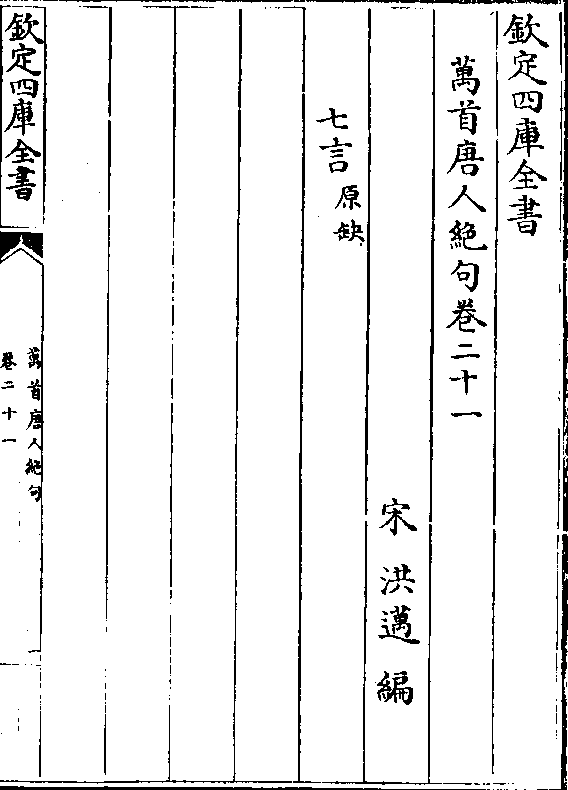 欽定四庫全書
萬首唐人絕句卷二十一
宋 洪邁 編
七言 原缺
欽定四庫全書
萬首唐人絕句
卷二十一
一